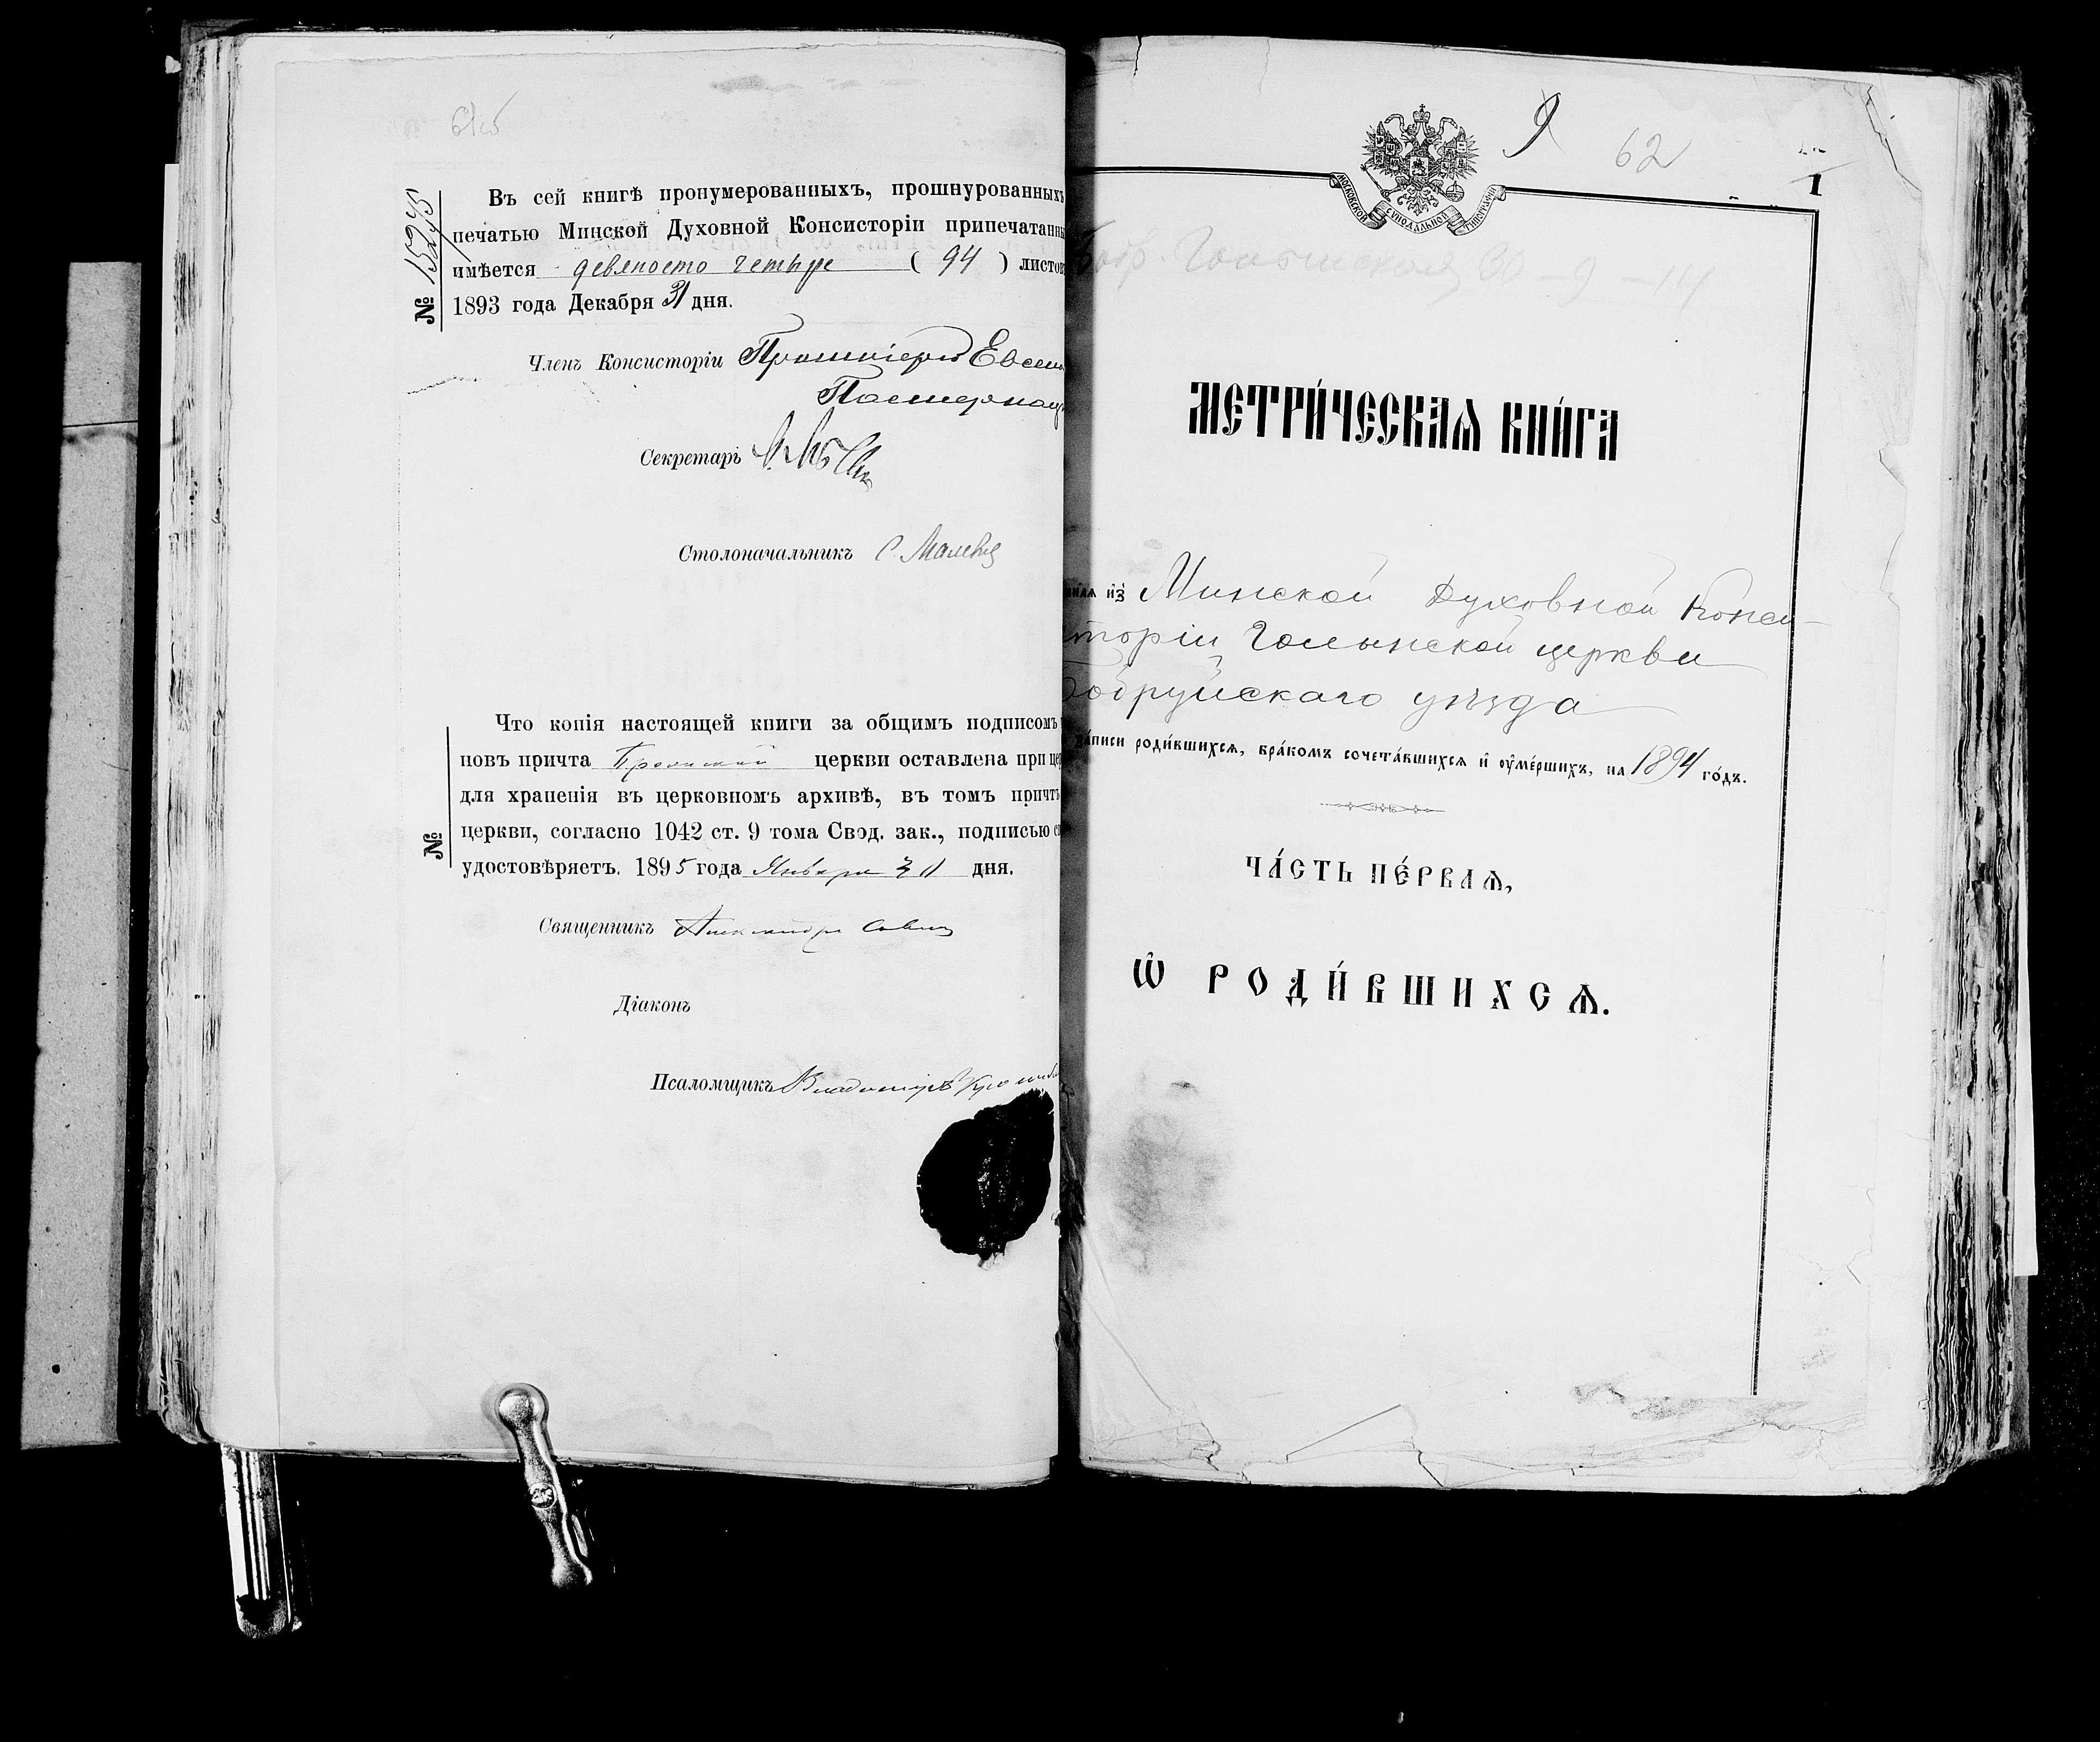 61об
№ 15975
Въ сей книгѣ пронумерованныхъ, прошнурованныхъ
печатью Минской Духовной Консисторіи припечатанны
имѣется девяносто четыре ( 94 ) листов
1893 года Декабря 31 дня.
Членъ Консисторіи Протоіерей
Секретарь
Столоначальникъ С.
№
Что копія настоящей книги за общимъ подписомъ
новъ причта церкви оставлена при це
для храненія въ церковномъ архивѣ, въ томъ причтъ
церкви, согласно 1042 ст. 9 тома Свод. зак., подписью с
удостовѣряетъ. 1895 года Января 31 дня.
Священникъ Александръ
Діаконъ
Псаломщикъ Владиміръ
9
62
1
МОСКОВСКОЙ СѴНОДАЛЬНОЙ ТИПОГРАФІИ
Бобр. Голынская 30-9-14
МЕТРИ́ЧЕСКАѦ КНИ́ГА
из̾ Минской Духовной Конси-
сторіи Голынской церкви
Бобруйскаго уѣзда
за́писи роди́вшихсѧ, бра́комъ сочета́вшихсѧ и҆ ᲂу҆ме́ршихъ, на 1894 го́дъ.
ЧА́СТЬ ПЕ́РВАѦ,
Ѡ҆ РОДИ́ВШИХСѦ.